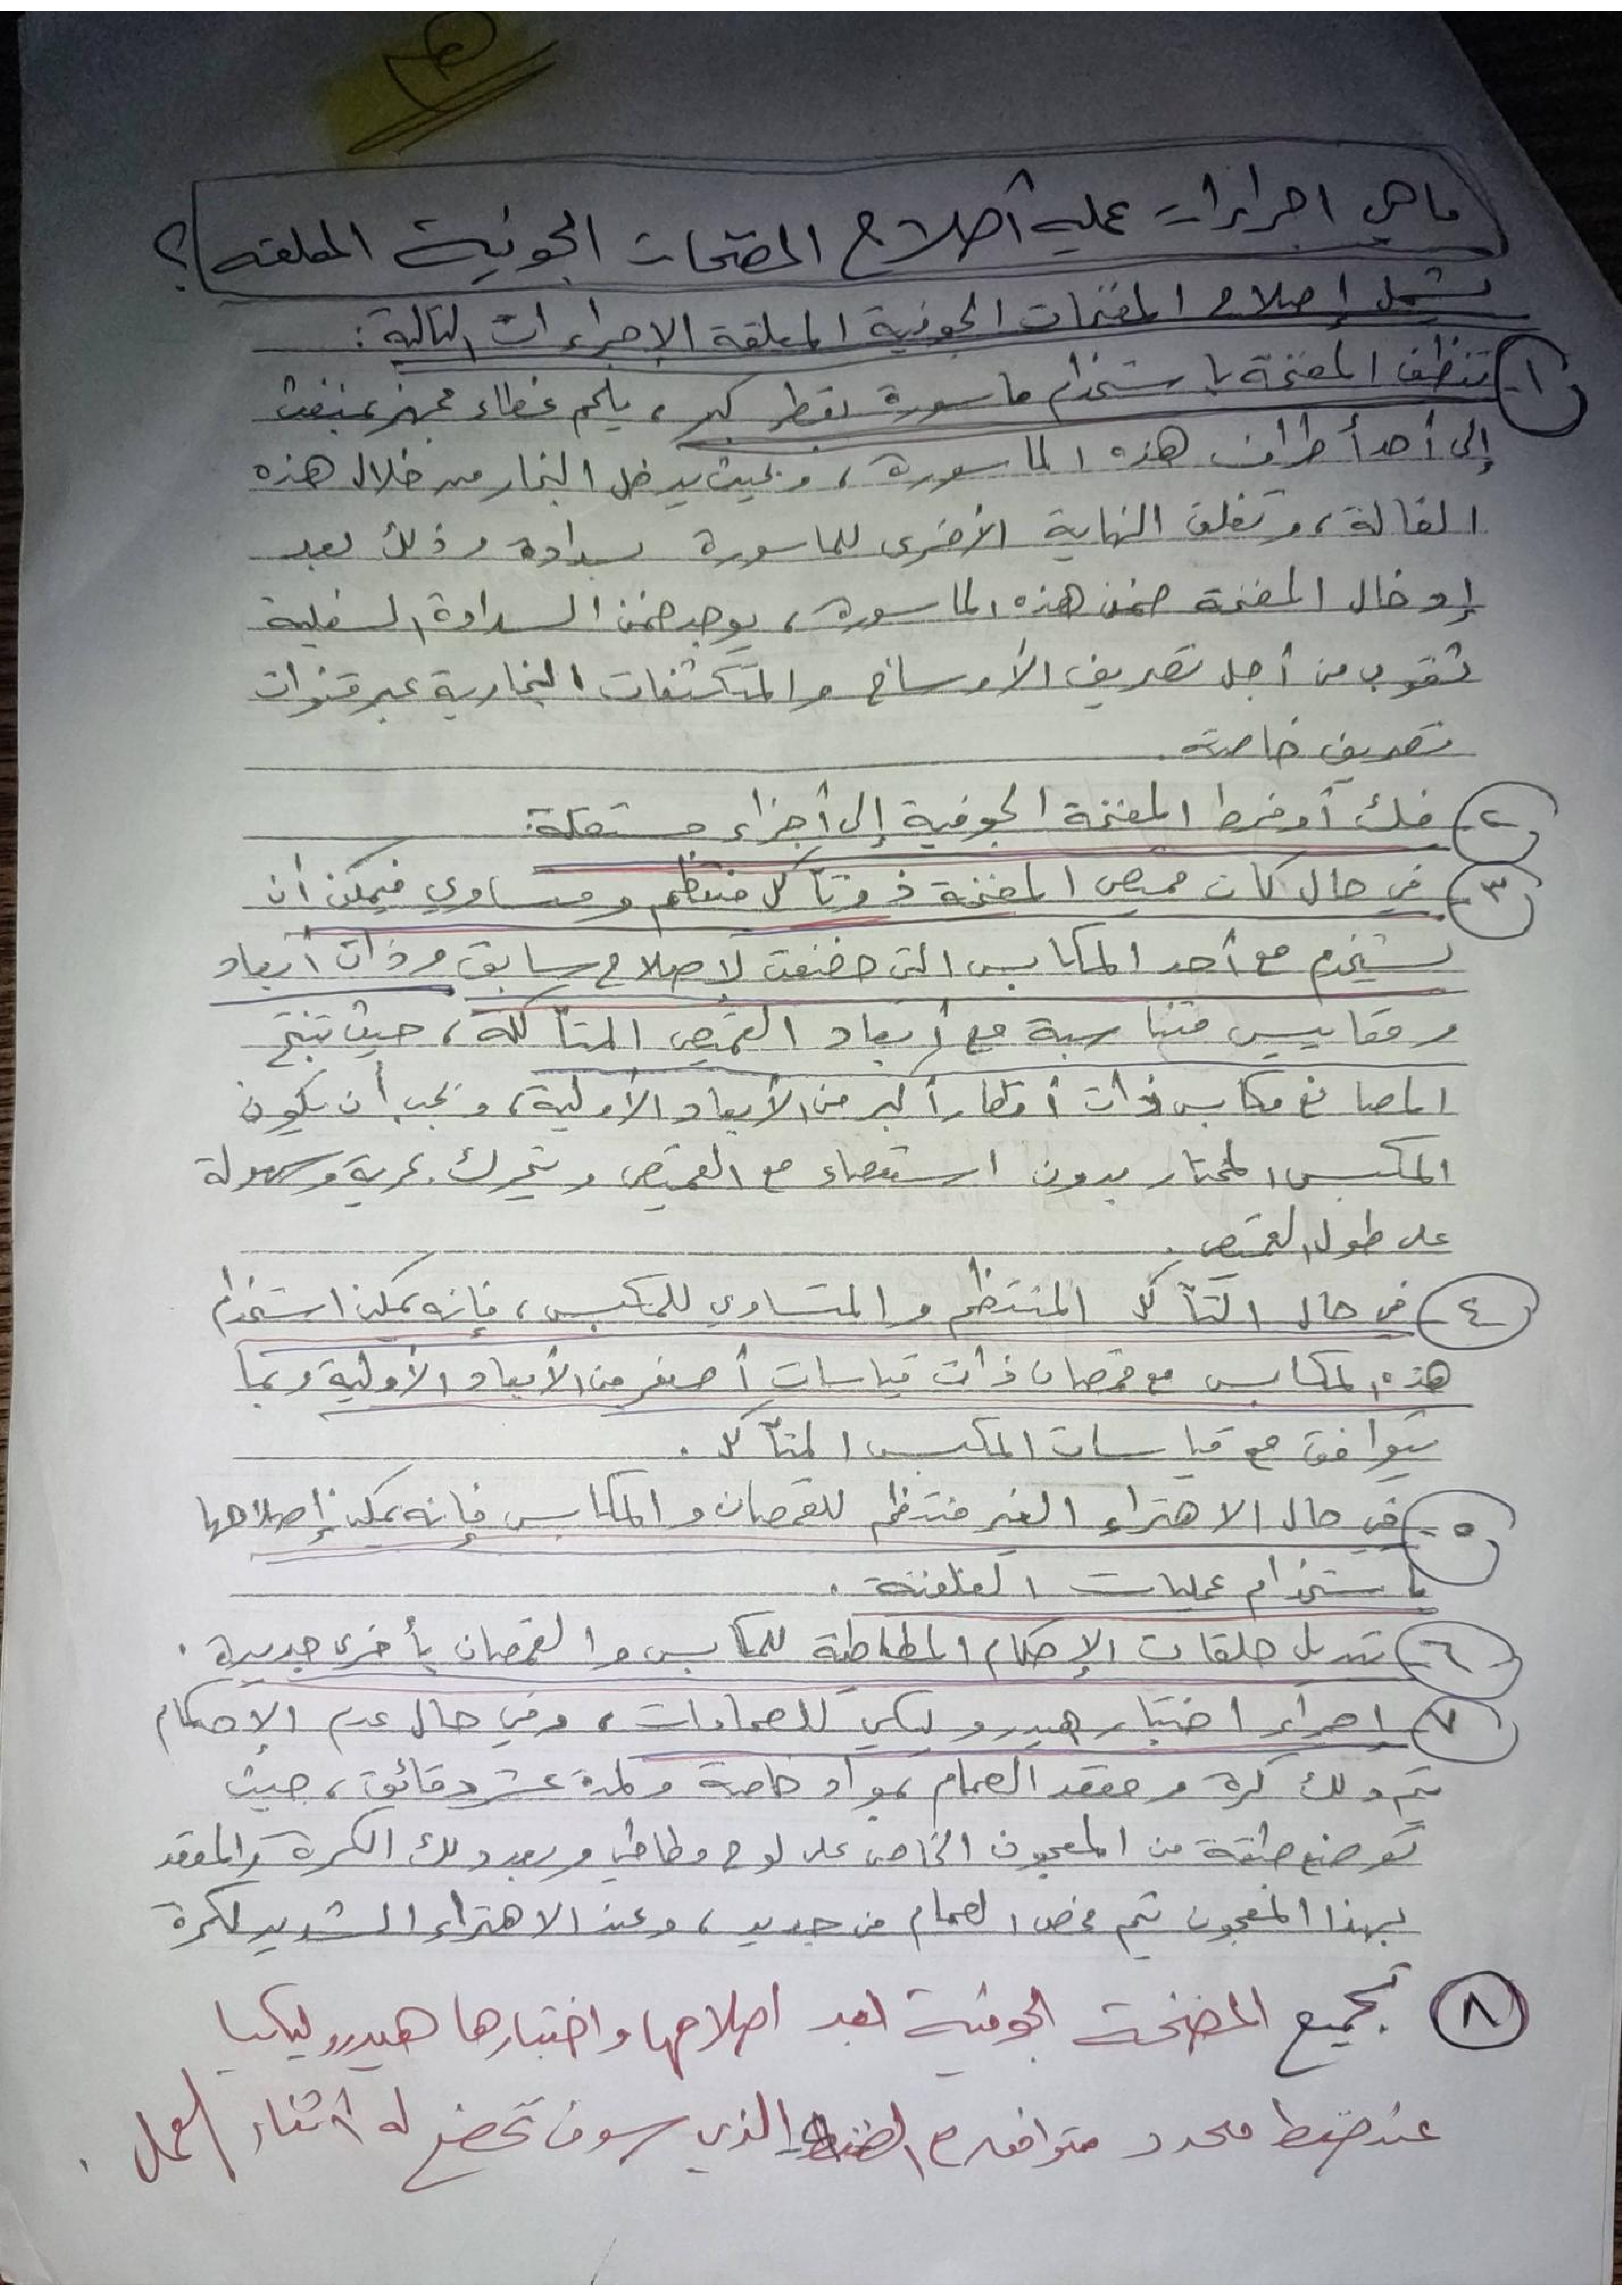 ما هي اجراءات عملية أصلاح المضخات الجوفية المعلقه؟
يشمل إصلاح المضخات الجوفية المعلقة الإجراءات التالية:
١- تنظف المضخة باستخدام ماسورة بقطر كبير، يلحم غطاء مجهز بمنفث
إلى أحد أطراف هذه الماسورة، وبحيث يدخل البخار من خلال هذه
الفالة، وتغلق النهاية الأخرى للماسورة بسدادة وذلك بعد
إدخال المضخة ضمن هذه الماسورة، يوجد ضمن السدادة السفلية
ثقوب من أجل تصريف الأوساخ والمتكثفات البخارية عبر قنوات
تصريف خاصة.
٢- فك أو فرط المضخة الجوفية إلى أجزاء مستقلة:
٣- في حال كان قميص المضخة ذو تآكل منتظم ومتساوي فيمكن أن
يستخدم مع أحد المكابس التي خضعت لإصلاح سابق وذات أبعاد
ومقاييس متناسبة مع أبعاد القميص المتآكلة، حيث تنتج
المصانع مكابس ذات أقطار أكبر من الأبعاد الأولية، ويجب أن يكون
المكبس المختار بدون استعصاء مع القميص ويتحرك بحرية وسهولة
على طول القميص.
٤- في حال التآكل المنتظم والمتساوي للمكبس، فإنه يمكن استخدام
هذه المكابس مع قمصان ذات قياسات أصغر من الأبعاد الأولية وبما
يتوافق مع قياسات المكبس المتآكل.
٥- في حال الاهتراء الغير منتظم للقمصان والمكابس فإنه يمكن إصلاحها
باستخدام عمليات الغلفنة.
٦- تبديل حلقات الإحكام المطاطية للمكابس والقمصان بأخرى جديدة.
٧- إجراء اختبار هيدروليكي للصمامات، وفي حال عدم الإحكام
يتم دلك كرة ومقعد الصمام بمواد خاصة ولمدة عشر دقائق، حيث
توضع طبقة من المعجون الخاص على لوح مطاطي وبعد دلك الكرة والمقعد
بهذا المعجون يتم فحص الصمام من جديد، وعند الاهتراء الشديد للكرة
٨ تجميع المضخة الجوفية بعد اصلاحها واختبارها هيدروليكيا
عند ضغط محدد متوافق مع الضغط الذي سوف تخضع له أثناء العمل.